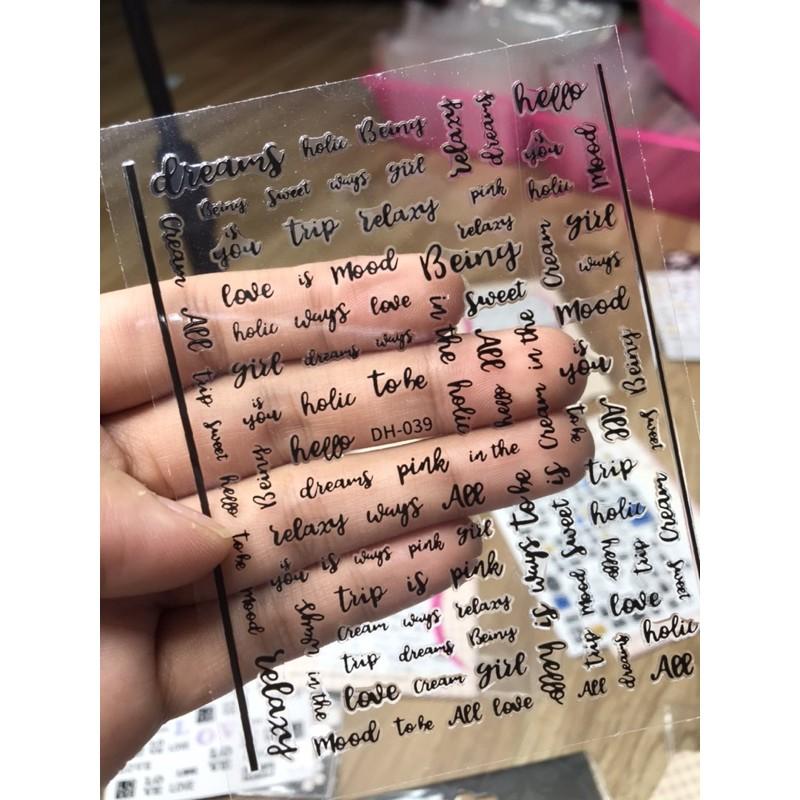 hello
dreams holic Being relaxy dreams is you Mood
Being sweet ways girl pink holic
Cream is you trip relaxy relaxy Cream girl
love is Mood Being ways
All holic ways love in the sweet Mood
trip girl dreams ways All in the is you Being
is you holic to be holic hello Cream to be All sweet
sweet hello DH-039
hello Being dreams pink in the trip Cream
to be relaxy ways All to be sweet is holic
is you is ways pink girl ways hello trip sweet
Mood ways trip is pink is Mood love
Cream ways relaxy
relaxy in the trip dreams Being hello trip dreams holic
love Cream girl All All
Mood to be All love